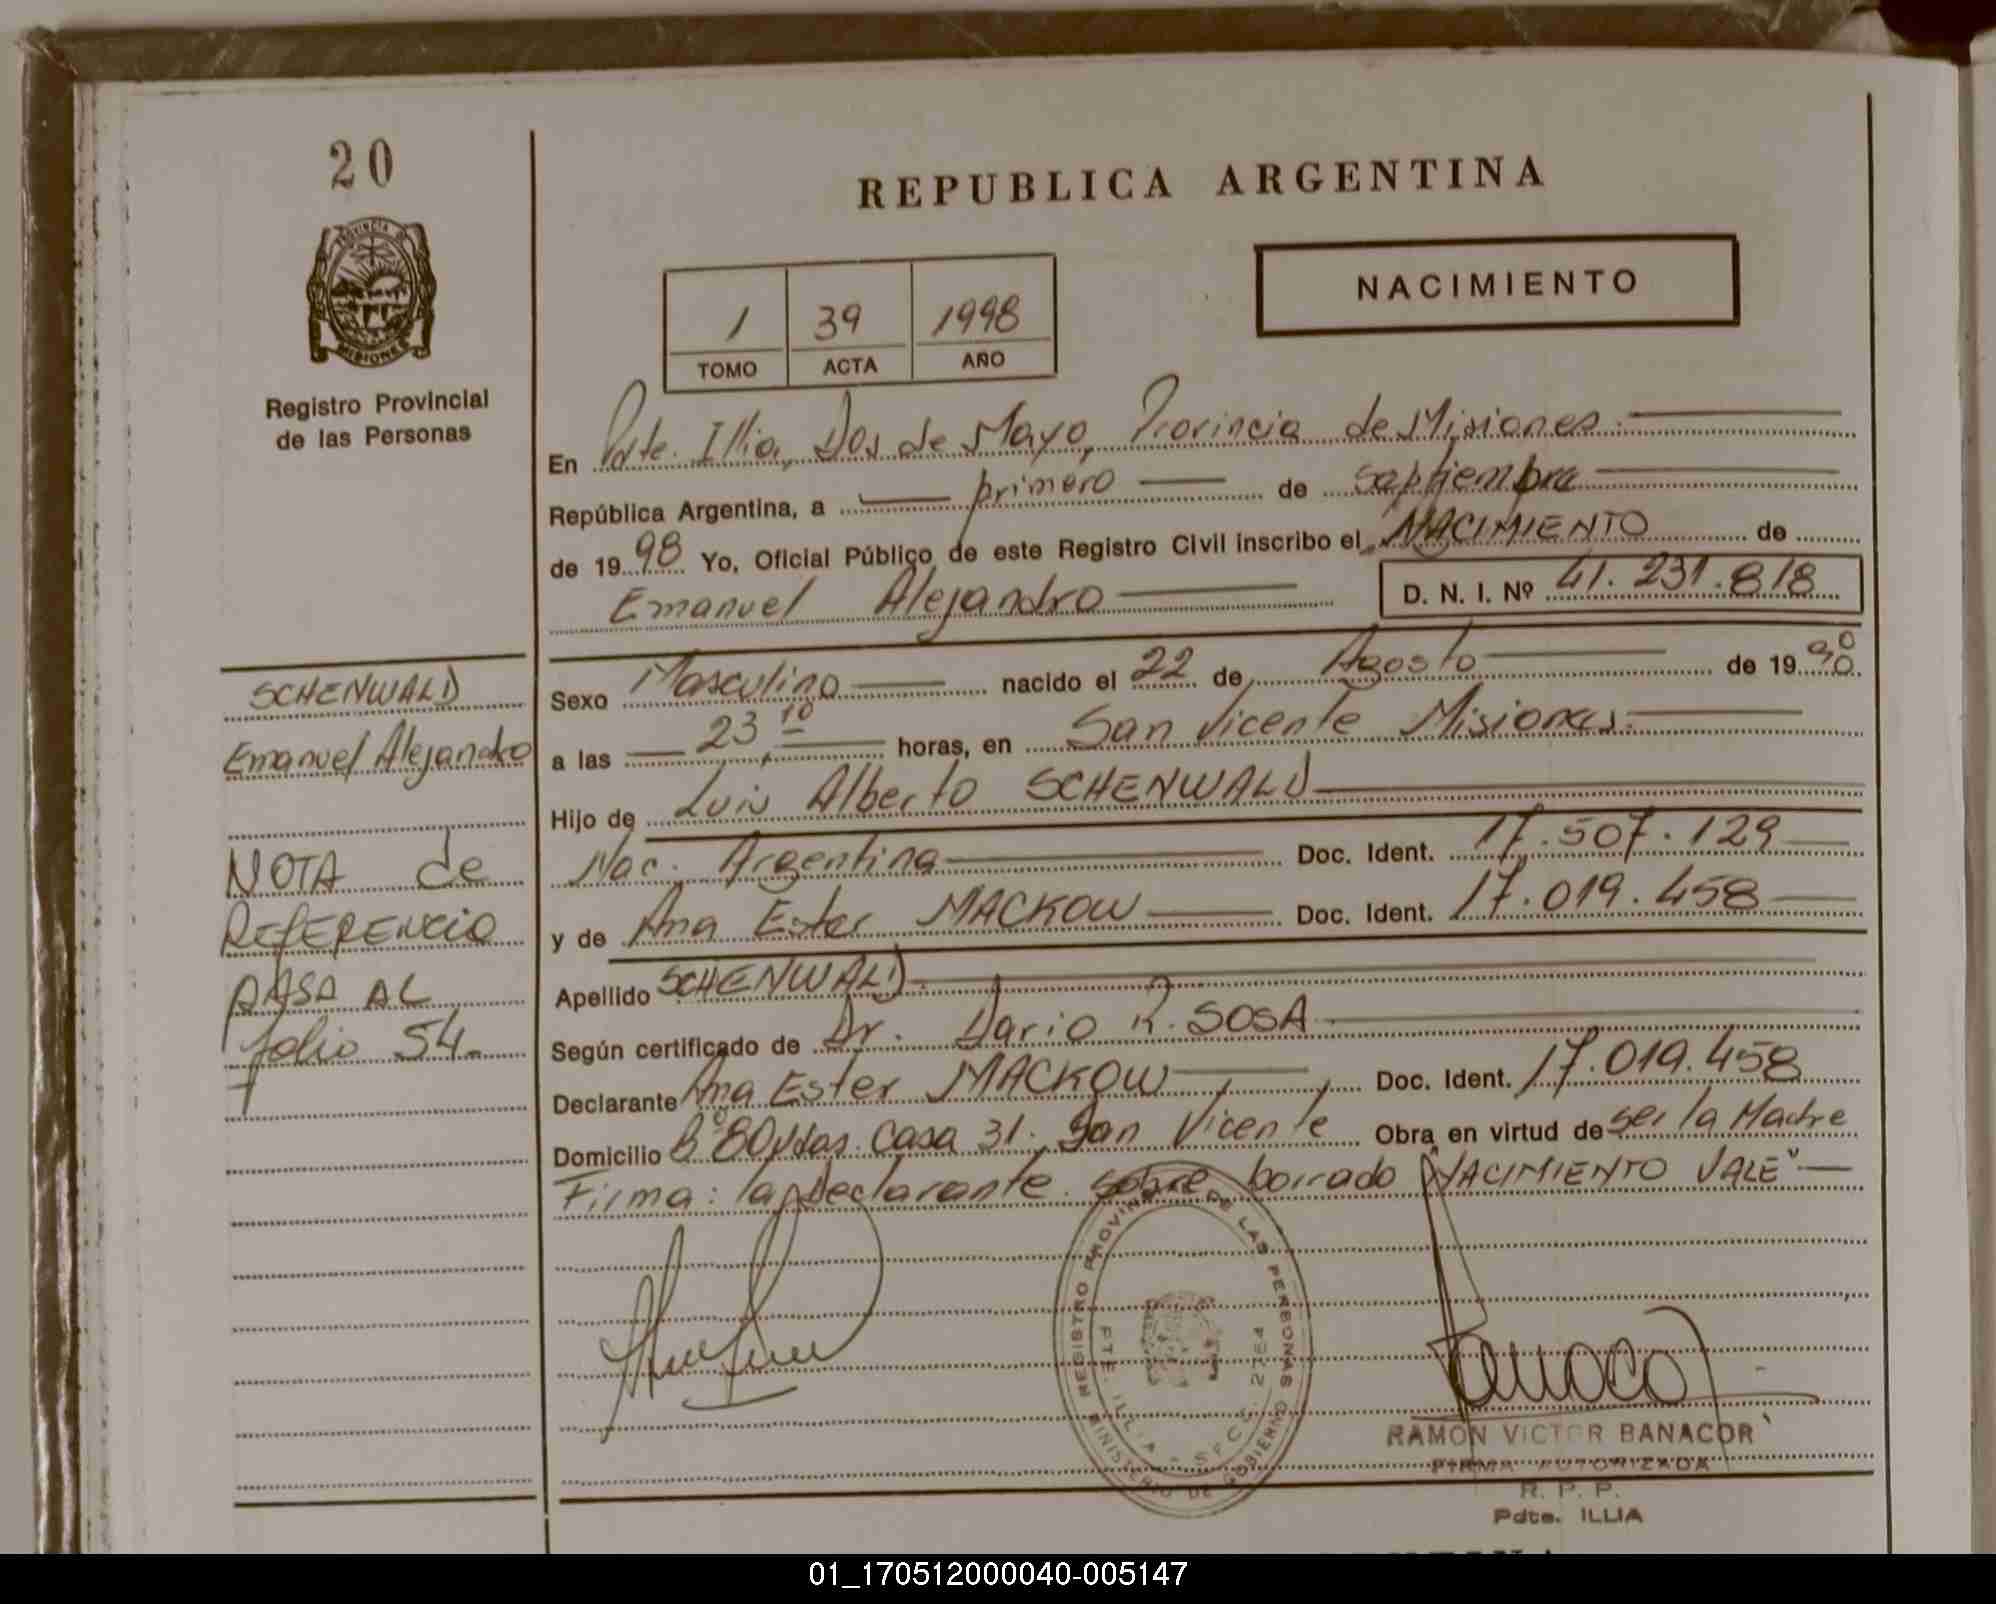 20
PROVINCIA DE
MISIONES
Registro Provincial
de las Personas
REPUBLICA ARGENTINA
NACIMIENTO
1 39 1998
TOMO ACTA AÑO
En Pdte. Illia, Dos de Mayo, Provincia de Misiones.
República Argentina, a primero de septiembre
de 1998 Yo, Oficial Público de este Registro Civil inscribo el NACIMIENTO de
Emanuel Alejandro D. N. I. Nº 41.231.818
Sexo Masculino nacido el 22 de Agosto de 1998.
a las 23,10 horas, en San Vicente Misiones.
Hijo de Luis Alberto SCHENWALD
Nac. Argentina Doc. Ident. 17.507.129
y de Ana Ester MACKOW Doc. Ident. 17.019.458
Apellido SCHENWALD.
Según certificado de Dr. Dario R. SOSA
Declarante Ana Ester MACKOW Doc. Ident. 17.019.458
Domicilio Bº 80 Vdas. Casa 31. San Vicente Obra en virtud de ser la Madre
Firma: la declarante. sobre borrado "NACIMIENTO VALE"
SCHENWALD
Emanuel Alejandro
NOTA de
REFERENCIA
PASA AL
folio 54.
REGISTRO PROVINCIAL DE LAS PERSONAS
MINISTERIO DE GOBIERNO
PTE. ILLIA - SECC. 2764
RAMON VICTOR BANACOR
FIRMA AUTORIZADA
R. P. P.
Pdte. ILLIA
01_170512000040-005147